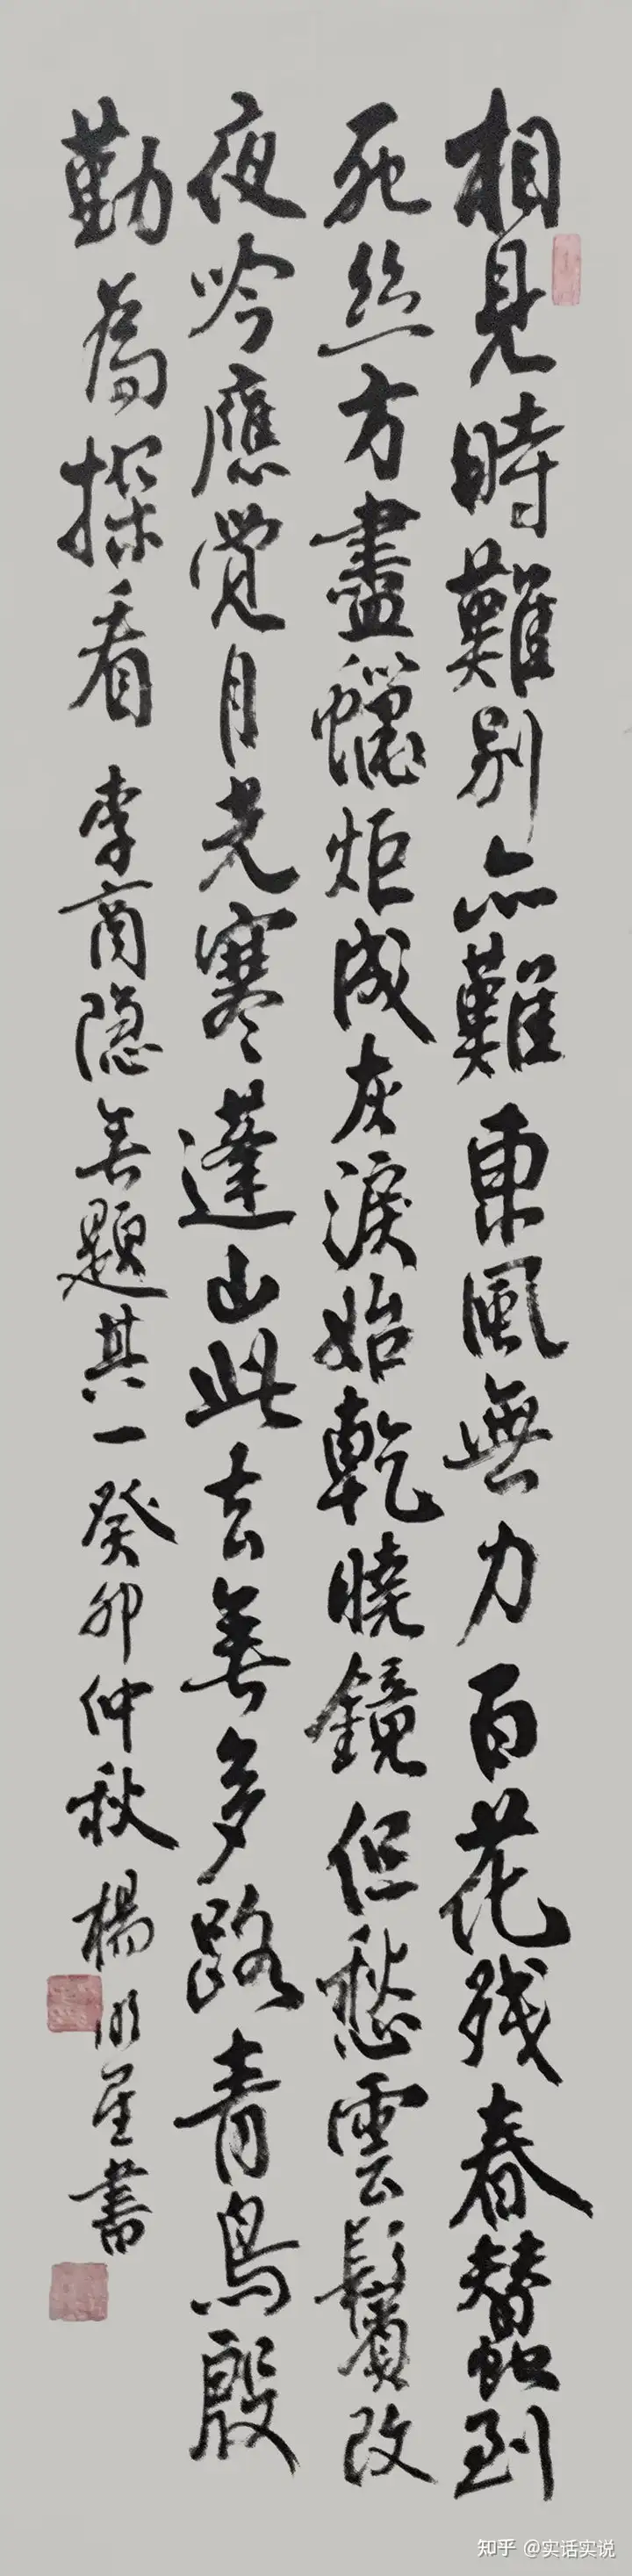 相見時難別亦難東風無力百花残春蠶到
死絲方盡蠟炬成灰淚始乾曉鏡但愁雲鬢改
夜吟應覺月光寒蓬山此去無多路青鳥殷
勤為探看 李商隐無題其一癸卯仲秋 楊明星書
知乎 @实话实说